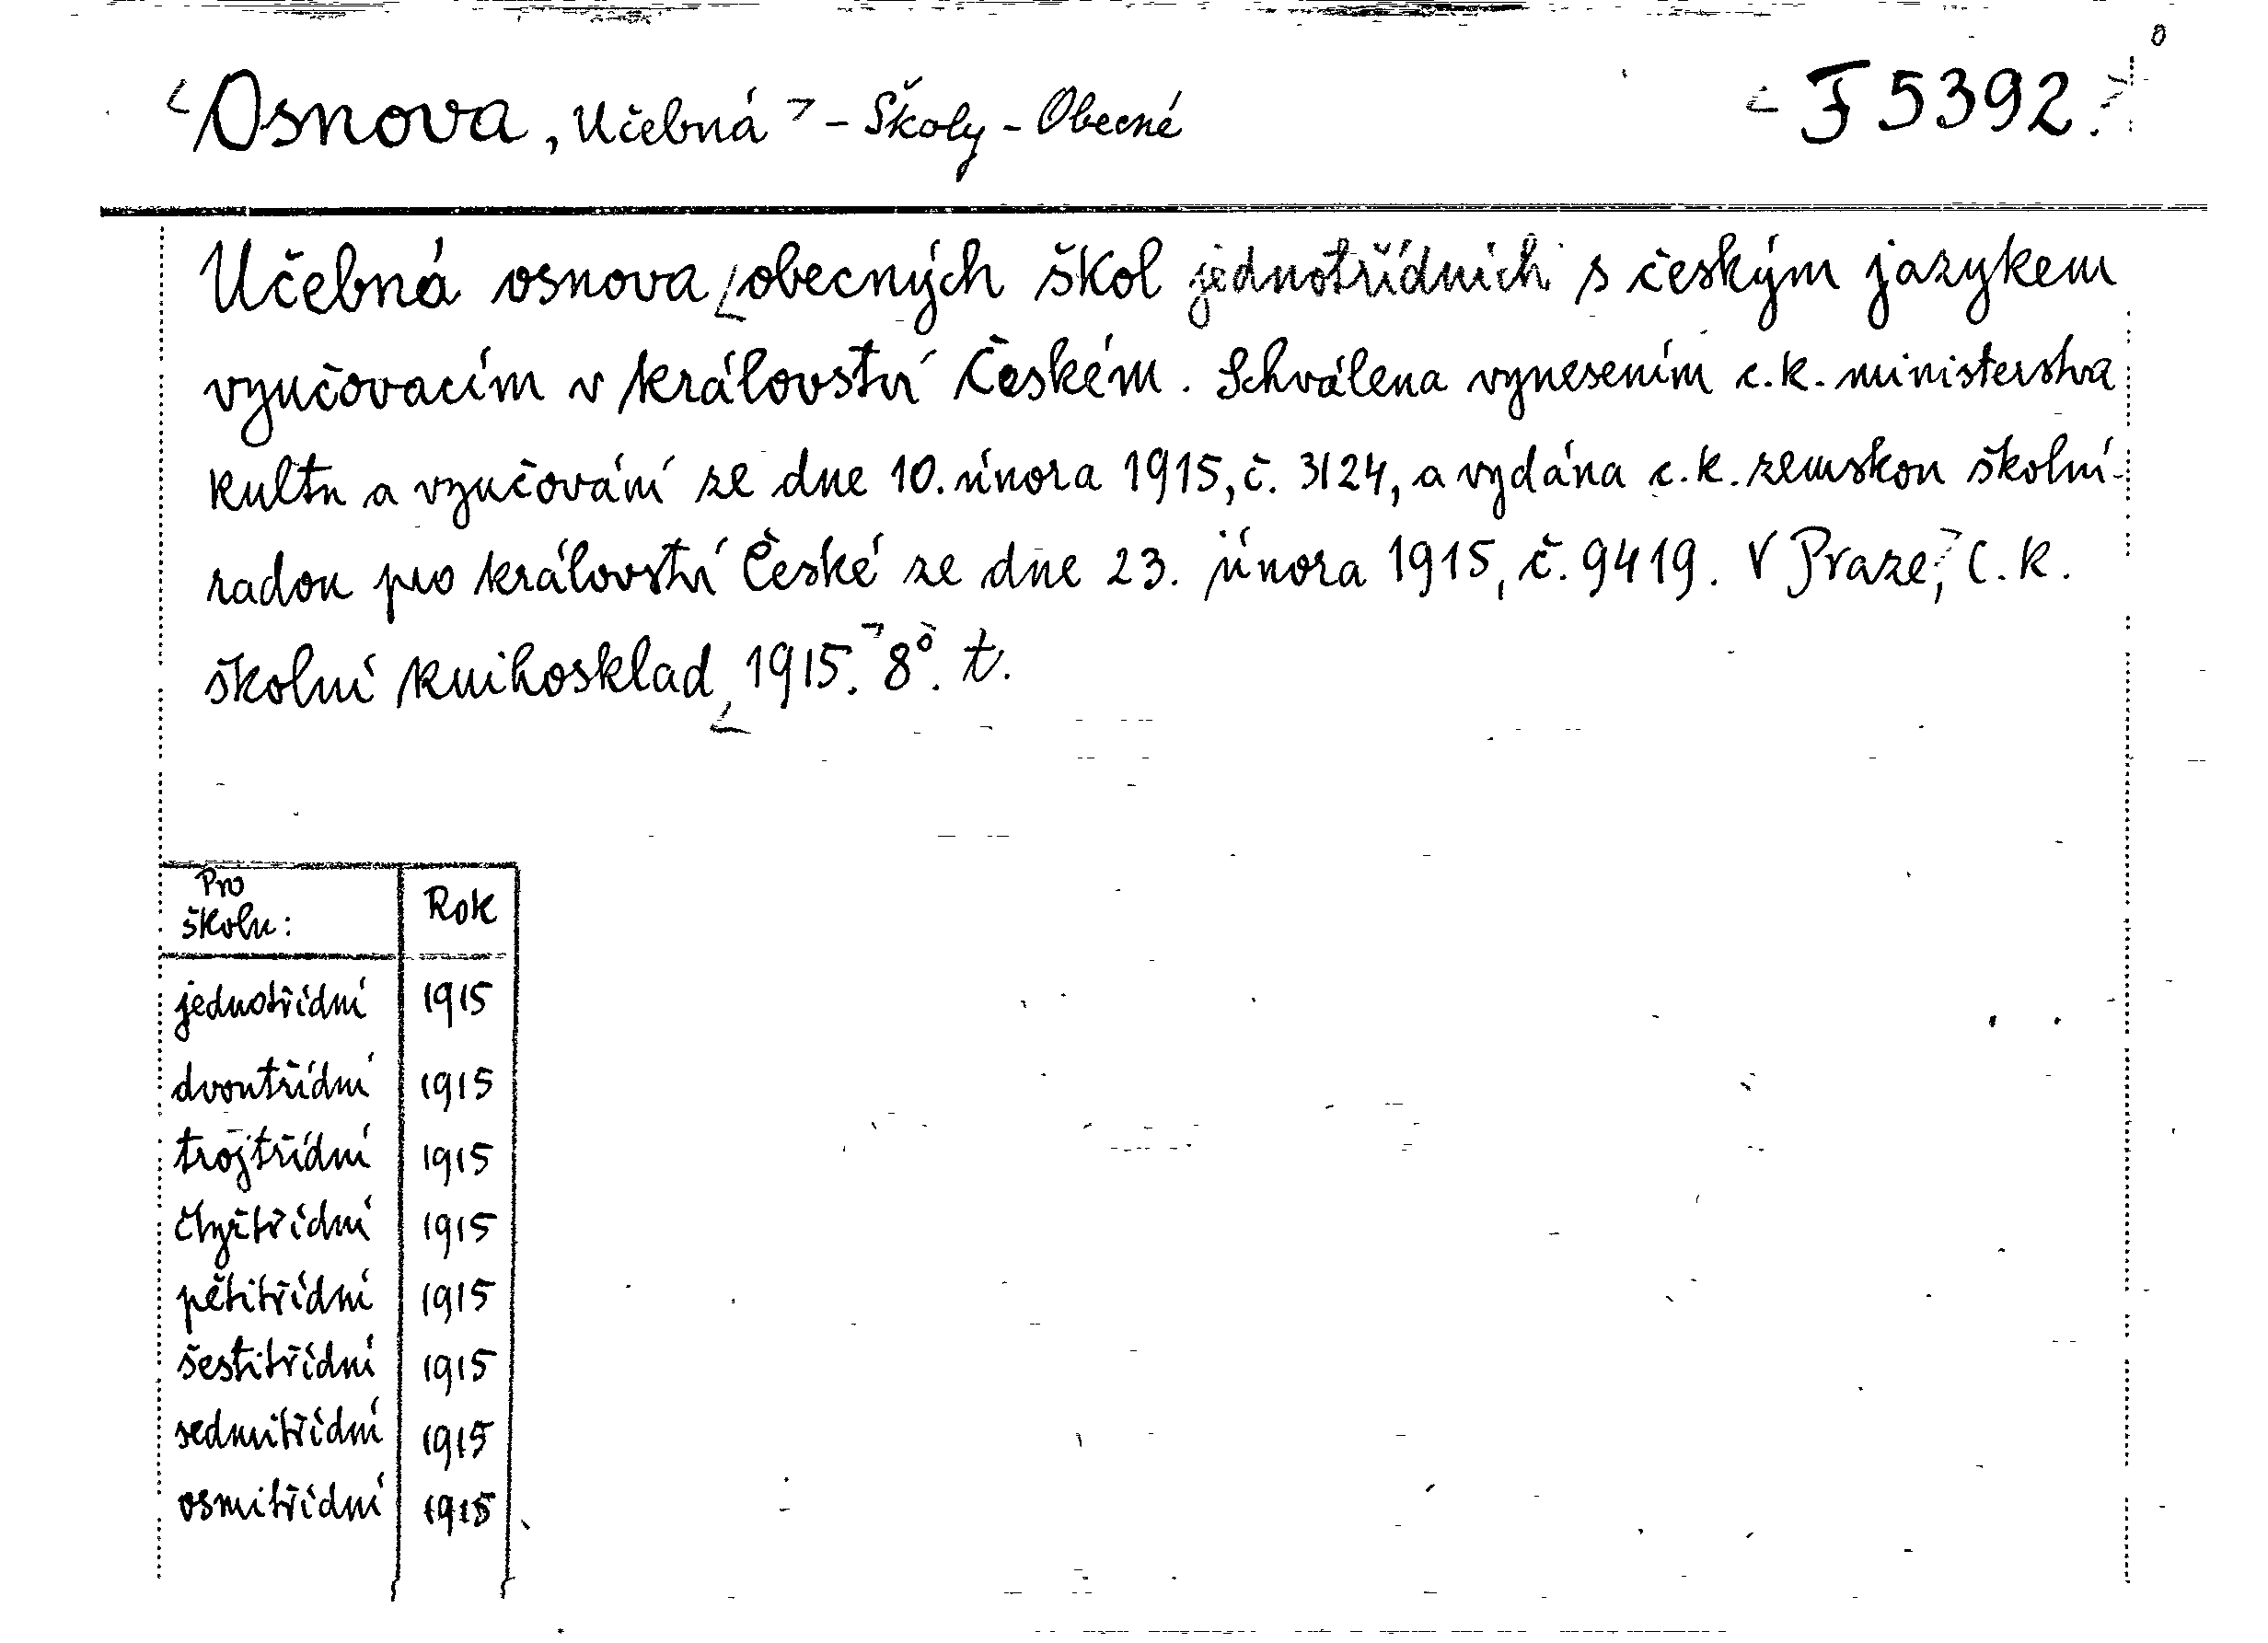 Osnova, Učebná - Školy - Obecné
F 5392.
Učebná osnova obecných škol jednotřídních s českým jazykem
vyučovacím v království Českém. Schválena vynesením c.k. ministerstva
kultu a vyučování ze dne 10. února 1915, č. 3124, a vydána c.k. zemskou školní
radou pro království České ze dne 23. února 1915, č. 9419. V Praze, C.k.
školní knihosklad, 1915. 8°. t.
Pro školu: | Rok
jednotřídní | 1915
dvoutřídní | 1915
trojtřídní | 1915
čtyřtřídní | 1915
pětitřídní | 1915
šestitřídní | 1915
sedmitřídní | 1915
osmitřídní | 1915